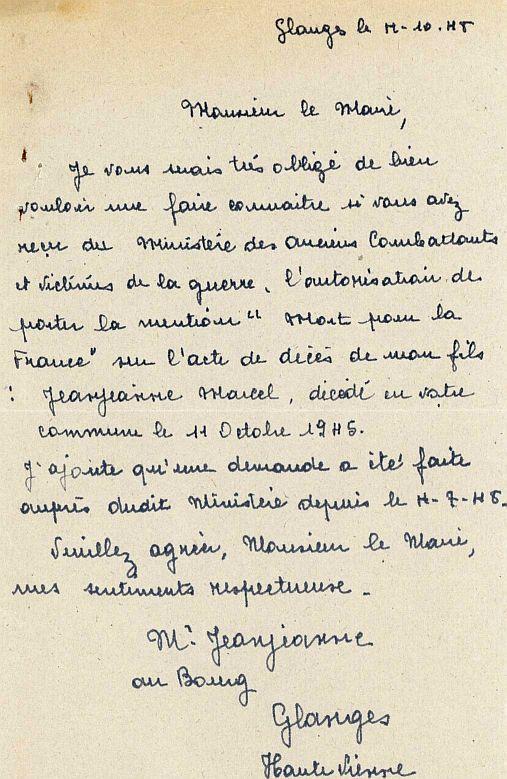 Glanges le 4-10-48
Monsieur le Maire,
Je vous serais très obligé de bien
vouloir me faire connaitre si vous avez
reçu du Ministère des Anciens Combattants
et Victimes de la guerre, l'autorisation de
porter la mention "Mort pour la
France" sur l'acte de décès de mon fils
: Jeanjeanne Marcel, décédé en votre
commune le 11 Octobre 1945.
J'ajoute qu'une demande a été faite
auprès dudit Ministère depuis le 4-7-48.
Veuillez agréer, Monsieur le Maire,
mes sentiments respectueuse.
Mr. Jeanjeanne
au Bourg
Glanges
Haute Vienne